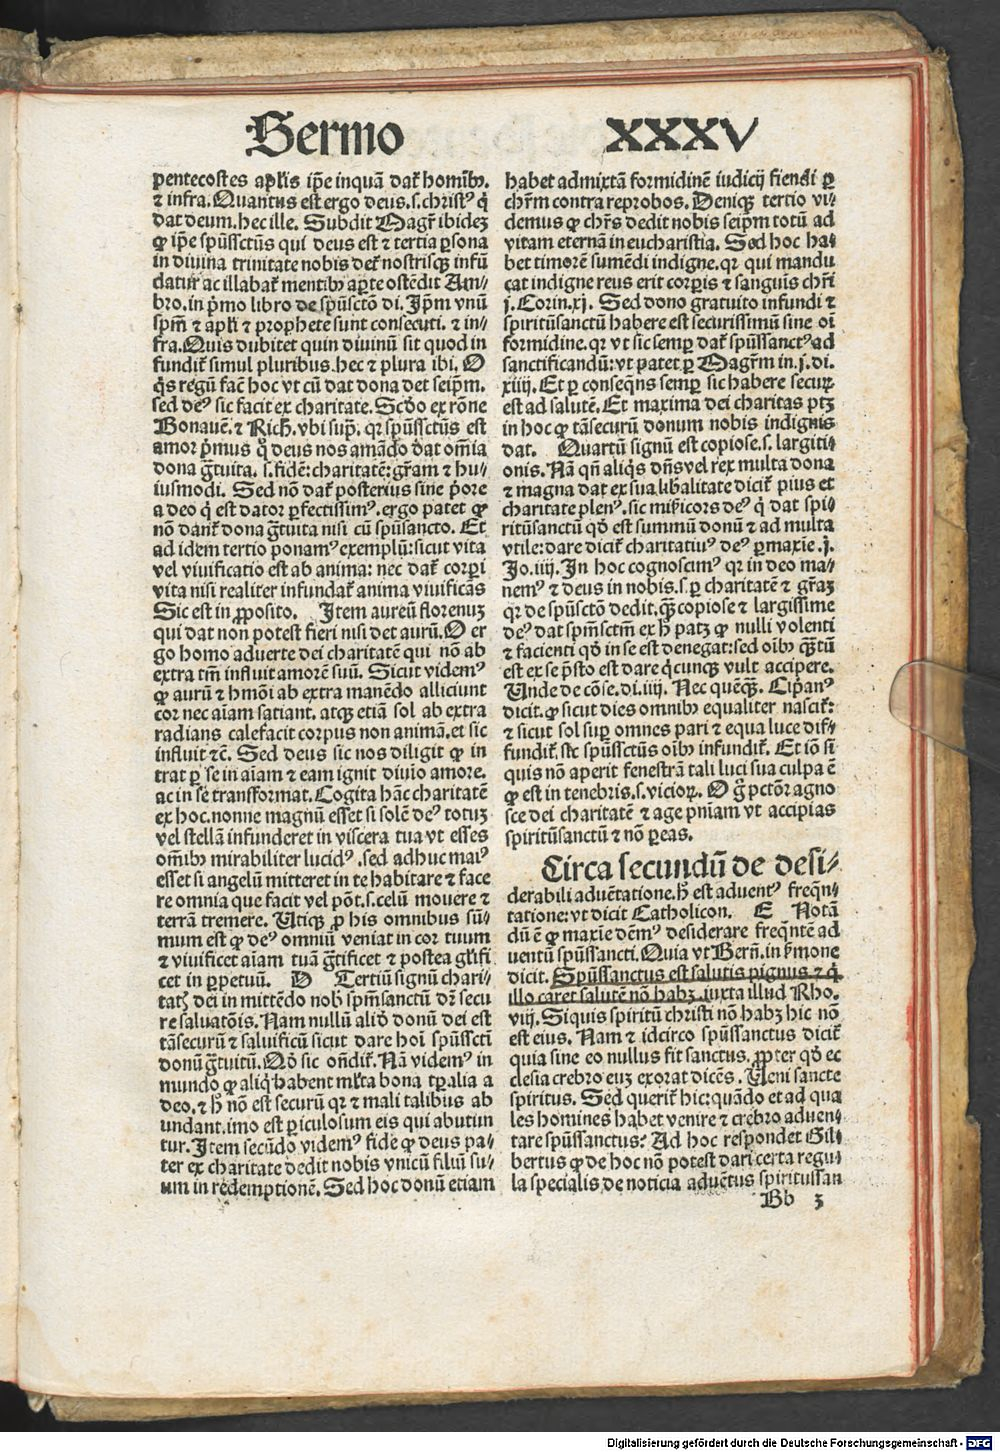 Sermo XXXV
pentecostes apl'is ip̄e inquā dat᷑ hominibꝰ.
⁊ infra. Quantus est ergo deus .s. christꝰ q̇
dat deum. hec ille. Subdit Magr̄ ibidez
ꝙ ip̄e spūssctūs qui deus est ⁊ tertia ꝑsona
in diuina trinitate nobis det᷑ nostrisqꝫ infū
datur ac illabat᷑ mentibꝰ aꝑte ostēdit Am-
bro. in p̄mo libro de spūsctō di. Ip̄m vnū
spm̄ ⁊ apl'i ⁊ prophete sunt consecuti. ⁊ in-
fra. Quis dubitet quin diuinū sit quod in
fundit᷑ simul pluribus. hec ⁊ plura ibi. O
q̇s regū fac̄ hoc vt cū dat dona det seip̄m.
sed deꝰ sic facit ex charitate. Scd'o ex rōne
Bonauē. ⁊ Rich. vbi sup̄. qr spūssctūs est
amor p̄mus q̊ deus nos amādo dat om̄ia
dona gr̄tuita. s. fidē: charitatē: gr̄am ⁊ hu-
iusmodi. Sed nō dat᷑ posterius sine p̄ore
a deo q̇ est dator ꝑfectissimꝰ. ergo patet ꝙ
nō dant᷑ dona gr̄tuita nisi cū spūsancto. Et
ad idem tertio ponamꝰ exemplū: sicut vita
vel viuificatio est ab anima: nec dat᷑ corꝑi
vita nisi realiter infundat᷑ anima viuificās
Sic est in ꝓposito. Item aureū florenuꝫ
qui dat non potest fieri nisi det aurū. O er
go homo aduerte dei charitatē qui nō ab
extra tm̄ influit amorē suū. Sicut videmꝰ
ꝙ aurū ⁊ hm̄ōi ab extra manēdo alliciunt
cor nec aīam satiant. atqꝫ etiā sol ab extra
radians calefacit corpus non animā. et sic
influit ⁊c̄. Sed deus sic nos diligit ꝙ in
trat ꝑ se in aīam ⁊ eam ignit diuīo amore.
ac in se transformat. Cogita hāc charitatē
ex hoc. nonne magnū esset si solē deꝰ totuꝫ
vel stellā infunderet in viscera tua vt esses
om̄ibꝰ mirabiliter lucidꝰ. sed adhuc maiꝰ
esset si angelū mitteret in te habitare ⁊ face
re omnia que facit vel pōt. s. celū mouere ⁊
terrā tremere. Utiqꝫ p̄ his omnibus sū-
mum est ꝙ deꝰ omniū veniat in cor tuum
⁊ viuificet aīam tuā gr̄tificet ⁊ postea gl'ifi
cet in ꝑpetuū. D Tertiū signū chari-
tatꝭ dei in mittēdo nobꝭ spm̄sanctū dꝛ̄ secu
re saluatōis. Nam nullū aliđ donū dei est
tāsecurū ⁊ saluificū sicut dare hoī spūssctū
donū gr̄tuitū. Qđ sic oñdit᷑. Nā videmꝰ in
mundo ꝙ aliq̇ habent ml'ta bona tꝑalia a
deo. ⁊ h̄ nō est securū qr ⁊ mali talibus ab
undant. imo est ꝑiculosum eis qui abutun
tur. Item secūdo videmꝰ fide ꝙ deus pa-
ter ex charitate dedit nobis vnicū filiū su-
um in redemptionē. Sed hoc donū etiam
habet admixtā formidinē iudicij fiendi ꝑ
chr̄m contra reprobos. Deniqꝫ tertio vi-
demus ꝙ chr̄s dedit nobis seip̄m totū ad
vitam eternā in eucharistia. Sed hoc ha-
bet timorē sumēdi indigne. qr qui mandu
cat indigne reus erit corꝑis ⁊ sanguīs chr̄i
j. Corin. xj. Sed dono gratuito infundi ⁊
spiritūsanctū habere est securissimū sine oī
formidine. qr vt sic semꝑ dat᷑ spūssanctꝰ ad
sanctificandū: vt patet ꝑ Magr̄m in .j. di.
xiiij. Et ꝑ conseqn̄s semꝑ sic habere securꝫ
est ad salutē. Et maxima dei charitas ptꝫ
in hoc ꝙ tāsecurū donum nobis indignis
dat. Quartū signū est copiose. s. largiti-
onis. Nā qn̄ aliq̇s dn̄s vel rex multa dona
⁊ magna dat ex sua libalitate dicit᷑ pius et
charitate plenꝰ. sic mīcors deꝰ q̇ dat spi-
ritūsanctū qđ est summū donū ⁊ ad multa
vtile: dare dicit᷑ charitatiuꝰ deꝰ ꝑmaxīe. j.
Jo. iiij. In hoc cognoscimꝰ qr in deo ma-
nemꝰ ⁊ deus in nobis. s. ꝑ charitatē ⁊ gr̄az
qr de spūsctō dedit. qꝫ copiose ⁊ largissime
deꝰ dat spm̄sctm̄ ex h̄ patꝫ ꝙ nulli volenti
⁊ facienti qđ in se est denegat: sed oībꝰ q̄tū
est ex se p̄sto est dare q̇cunqꝫ vult accipere.
Unde de cōse. di. iiij. Nec quēqꝫ. Ciprianꝰ
dicit. ꝙ sicut dies omnibꝰ equaliter nascit᷑:
⁊ sicut sol sup omnes pari ⁊ equa luce dif-
fundit᷑. sic spūssctūs oībꝰ infundit᷑. Et iō si
quis nō aperit fenestrā tali luci sua culpa ē
ꝙ est in tenebris. s. vicioꝝ. O g̊ pctōr agno
sce dei charitatē ⁊ age pn̄iam vt accipias
spiritūsanctū ⁊ nō ꝑeas.
Circa secundū de desi-
derabili aduētatione. h̄ est aduentꝰ freqn̄-
tatione: vt dicit Catholicon. E Notā
dū ē ꝙ maxīe dēmꝰ desiderare freqn̄te ad
uentū spūssancti. Quia vt Bern̄. in s̄mone
dicit. Spūssanctus est salutis pignus ⁊ q̇
illo caret salutē nō habꝫ. iuxta illud Rho.
viij. Siquis spiritū christi nō habꝫ hic nō
est eius. Nam ⁊ idcirco spūssanctus dicit᷑
quia sine eo nullus fit sanctus. ꝓpter qđ ec
clesia crebro euꝫ exorat dicēs. Ueni sancte
spiritus. Sed querit᷑ hic: quādo et ad qua
les homines habet venire ⁊ crebro aduen-
tare spūssanctus? Ad hoc respondet Gil-
bertus ꝙ de hoc nō potest dari certa regu-
la specialis de noticia aduētus spiritussan
Bb 3
Digitalisierung gefördert durch die Deutsche Forschungsgemeinschaft - DFG